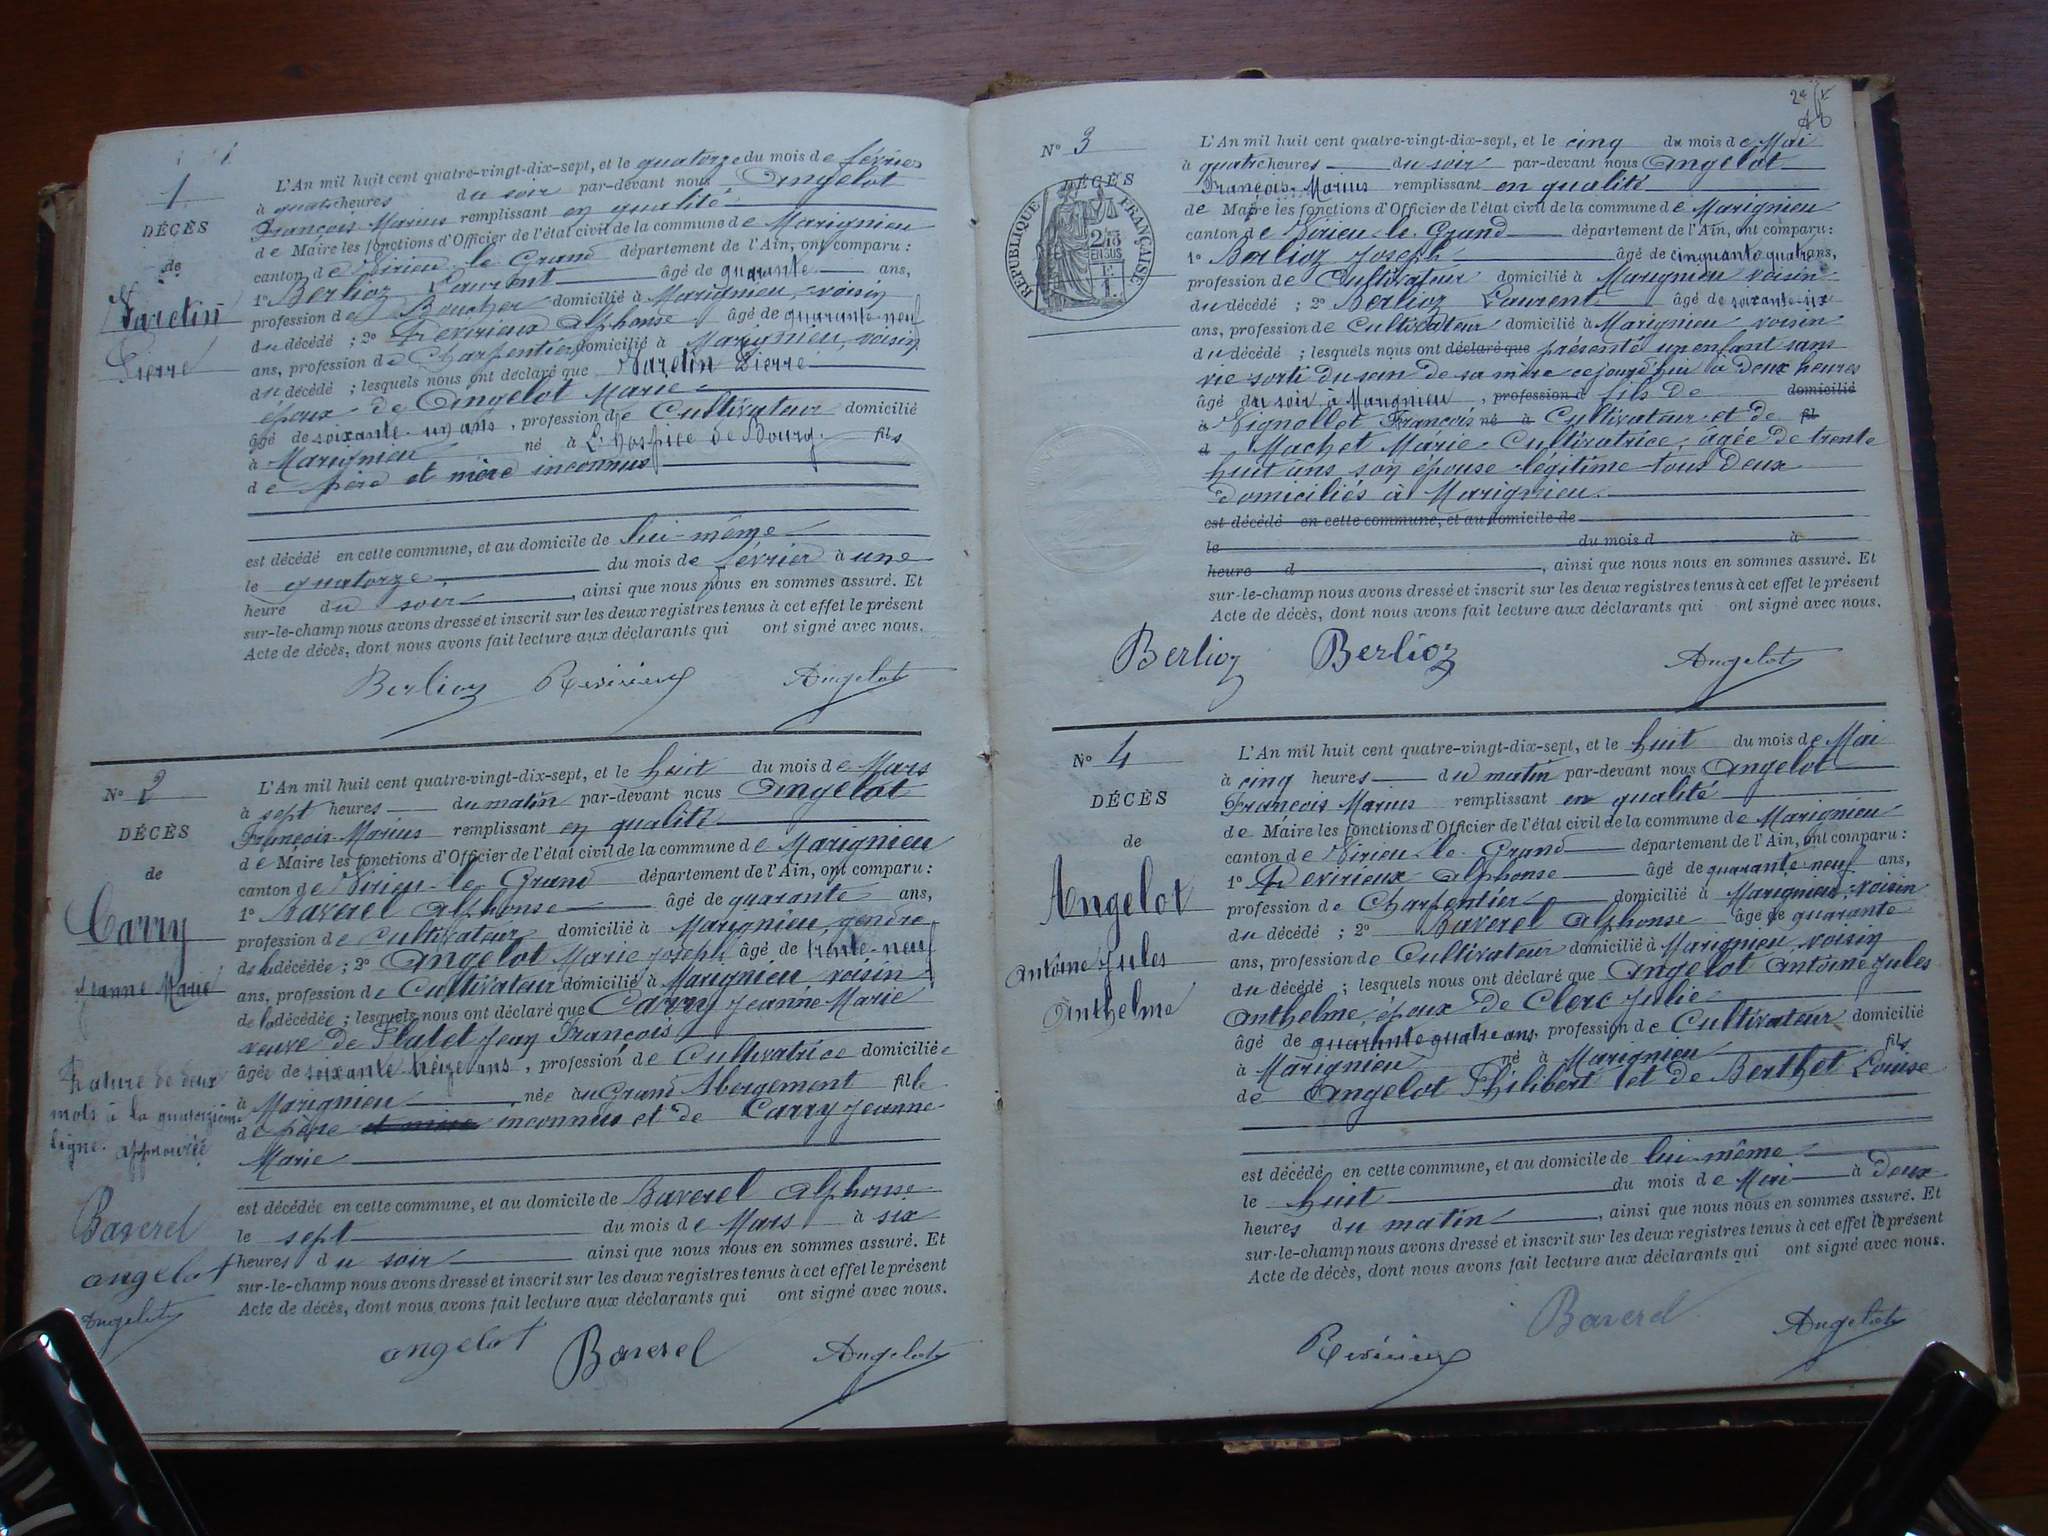 1
DÉCÈS
de
Varetin
Pierre
L'An mil huit cent quatre-vingt-dix-sept, et le quatorze du mois de février
à quatre heures du soir par-devant nous Angelot
François Marius remplissant en qualité
de Maire les fonctions d'Officier de l'état civil de la commune de Marignieu
canton de Virieu-le-Grand département de l'Ain, ont comparu :
1° Berlioz Laurent âgé de quarante ans,
profession de Boucher domicilié à Marignieu, voisin
du décédé ; 2° Revirieux Alphonse âgé de quarante-neuf
ans, profession de Charpentier domicilié à Marignieu, voisin
du décédé ; lesquels nous ont déclaré que Varetin Pierre
époux de Angelot Marie
âgé de soixante-un ans, profession de Cultivateur domicilié
à Marignieu né à L'hospice de Bourg fils
de père et mère inconnus
est décédé en cette commune, et au domicile de lui-même
le quatorze, du mois de février à une
heure du soir, ainsi que nous nous en sommes assuré. Et
sur-le-champ nous avons dressé et inscrit sur les deux registres tenus à cet effet le présent
Acte de décès, dont nous avons fait lecture aux déclarants qui ont signé avec nous.
Berlioz Revirieux Angelot
N° 2
DÉCÈS
de
Carry
Jeanne Marie
Rature de deux
mots à la quatorzième
ligne. approuvée
Baverel
angelot
Angelot
L'An mil huit cent quatre-vingt-dix-sept, et le huit du mois de Mars
à sept heures du matin par-devant nous Angelot
François-Marius remplissant en qualité
de Maire les fonctions d'Officier de l'état civil de la commune de Marignieu
canton de Virieu-le-Grand département de l'Ain, ont comparu :
1° Baverel Alphonse âgé de quarante ans,
profession de Cultivateur domicilié à Marignieu, gendre
de la décédée ; 2° Angelot Marie Joseph âgé de trente-neuf
ans, profession de Cultivateur domicilié à Marignieu voisin
de la décédée ; lesquels nous ont déclaré que Carry Jeanne-Marie
veuve de Jean François
âgée de soixante treize ans, profession de Cultivatrice domiciliée
à Marignieu, née au Grand Abergement fille
de père et mère inconnus et de Carry Jeanne-
Marie
est décédée en cette commune, et au domicile de Baverel Alphonse
le sept du mois de Mars à six
heures du soir ainsi que nous nous en sommes assuré. Et
sur-le-champ nous avons dressé et inscrit sur les deux registres tenus à cet effet le présent
Acte de décès, dont nous avons fait lecture aux déclarants qui ont signé avec nous.
angelot Baverel Angelot
2e
N° 3
DÉCÈS
RÉPUBLIQUE FRANÇAISE
EN SUS
L'An mil huit cent quatre-vingt-dix-sept, et le cinq du mois de Mai
à quatre heures du soir par-devant nous Angelot
François-Marius remplissant en qualité
de Maire les fonctions d'Officier de l'état civil de la commune de Marignieu
canton de Virieu-le-Grand département de l'Ain, ont comparu :
1° Berlioz Joseph âgé de cinquante quatre ans,
profession de Cultivateur domicilié à Marignieu voisin
du décédé ; 2° Berlioz Laurent âgé de soixante-six
ans, profession de Cultivateur domicilié à Marignieu voisin
du décédé ; lesquels nous ont déclaré que présenté un enfant sans
vie sorti du sein de sa mère ce jourd'hui à deux heures
âgé du soir à Marignieu, profession d fils de domicilié
à Vignollet François né à Cultivateur et de fil
d Machet Marie Cultivatrice, âgée de trente
huit ans, son épouse légitime tous deux
domiciliés à Marignieu.
est décédé en cette commune, et au domicile de
le du mois d à
heure d, ainsi que nous nous en sommes assuré. Et
sur-le-champ nous avons dressé et inscrit sur les deux registres tenus à cet effet le présent
Acte de décès, dont nous avons fait lecture aux déclarants qui ont signé avec nous.
Berlioz Berlioz Angelot
N° 4
DÉCÈS
de
Angelot
Antoine Jules
Anthelme
L'An mil huit cent quatre-vingt-dix-sept, et le huit du mois de Mai
à cinq heures du matin par-devant nous Angelot
François Marius remplissant en qualité
de Maire les fonctions d'Officier de l'état civil de la commune de Marignieu
canton de Virieu-le-Grand département de l'Ain, ont comparu :
1° Revirieux Alphonse âgé de quarante-neuf ans,
profession de Charpentier domicilié à Marignieu, voisin
du décédé ; 2° Baverel Alphonse âgé de quarante
ans, profession de Cultivateur domicilié à Marignieu voisin
du décédé ; lesquels nous ont déclaré que Angelot Antoine Jules
Anthelme, époux de Clerc Julie
âgé de quarante quatre ans, profession de Cultivateur domicilié
à Marignieu né à Marignieu fils
de Angelot Philibert et de Berthet Louise
est décédé en cette commune, et au domicile de lui-même
le huit du mois de Mai à deux
heures du matin, ainsi que nous nous en sommes assuré. Et
sur-le-champ nous avons dressé et inscrit sur les deux registres tenus à cet effet le présent
Acte de décès, dont nous avons fait lecture aux déclarants qui ont signé avec nous.
Revirieux Baverel Angelot